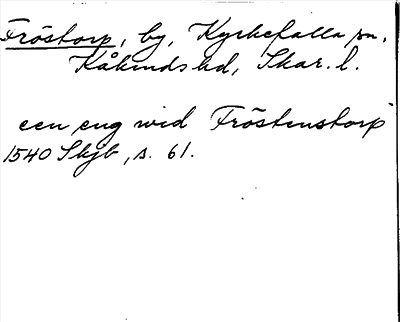 Fröstorp, by, Kyrkefalla sn,
Kåkinds hd, Skar. l.
een eng wid Fröstenstorp
1540 Skjb, s. 61.